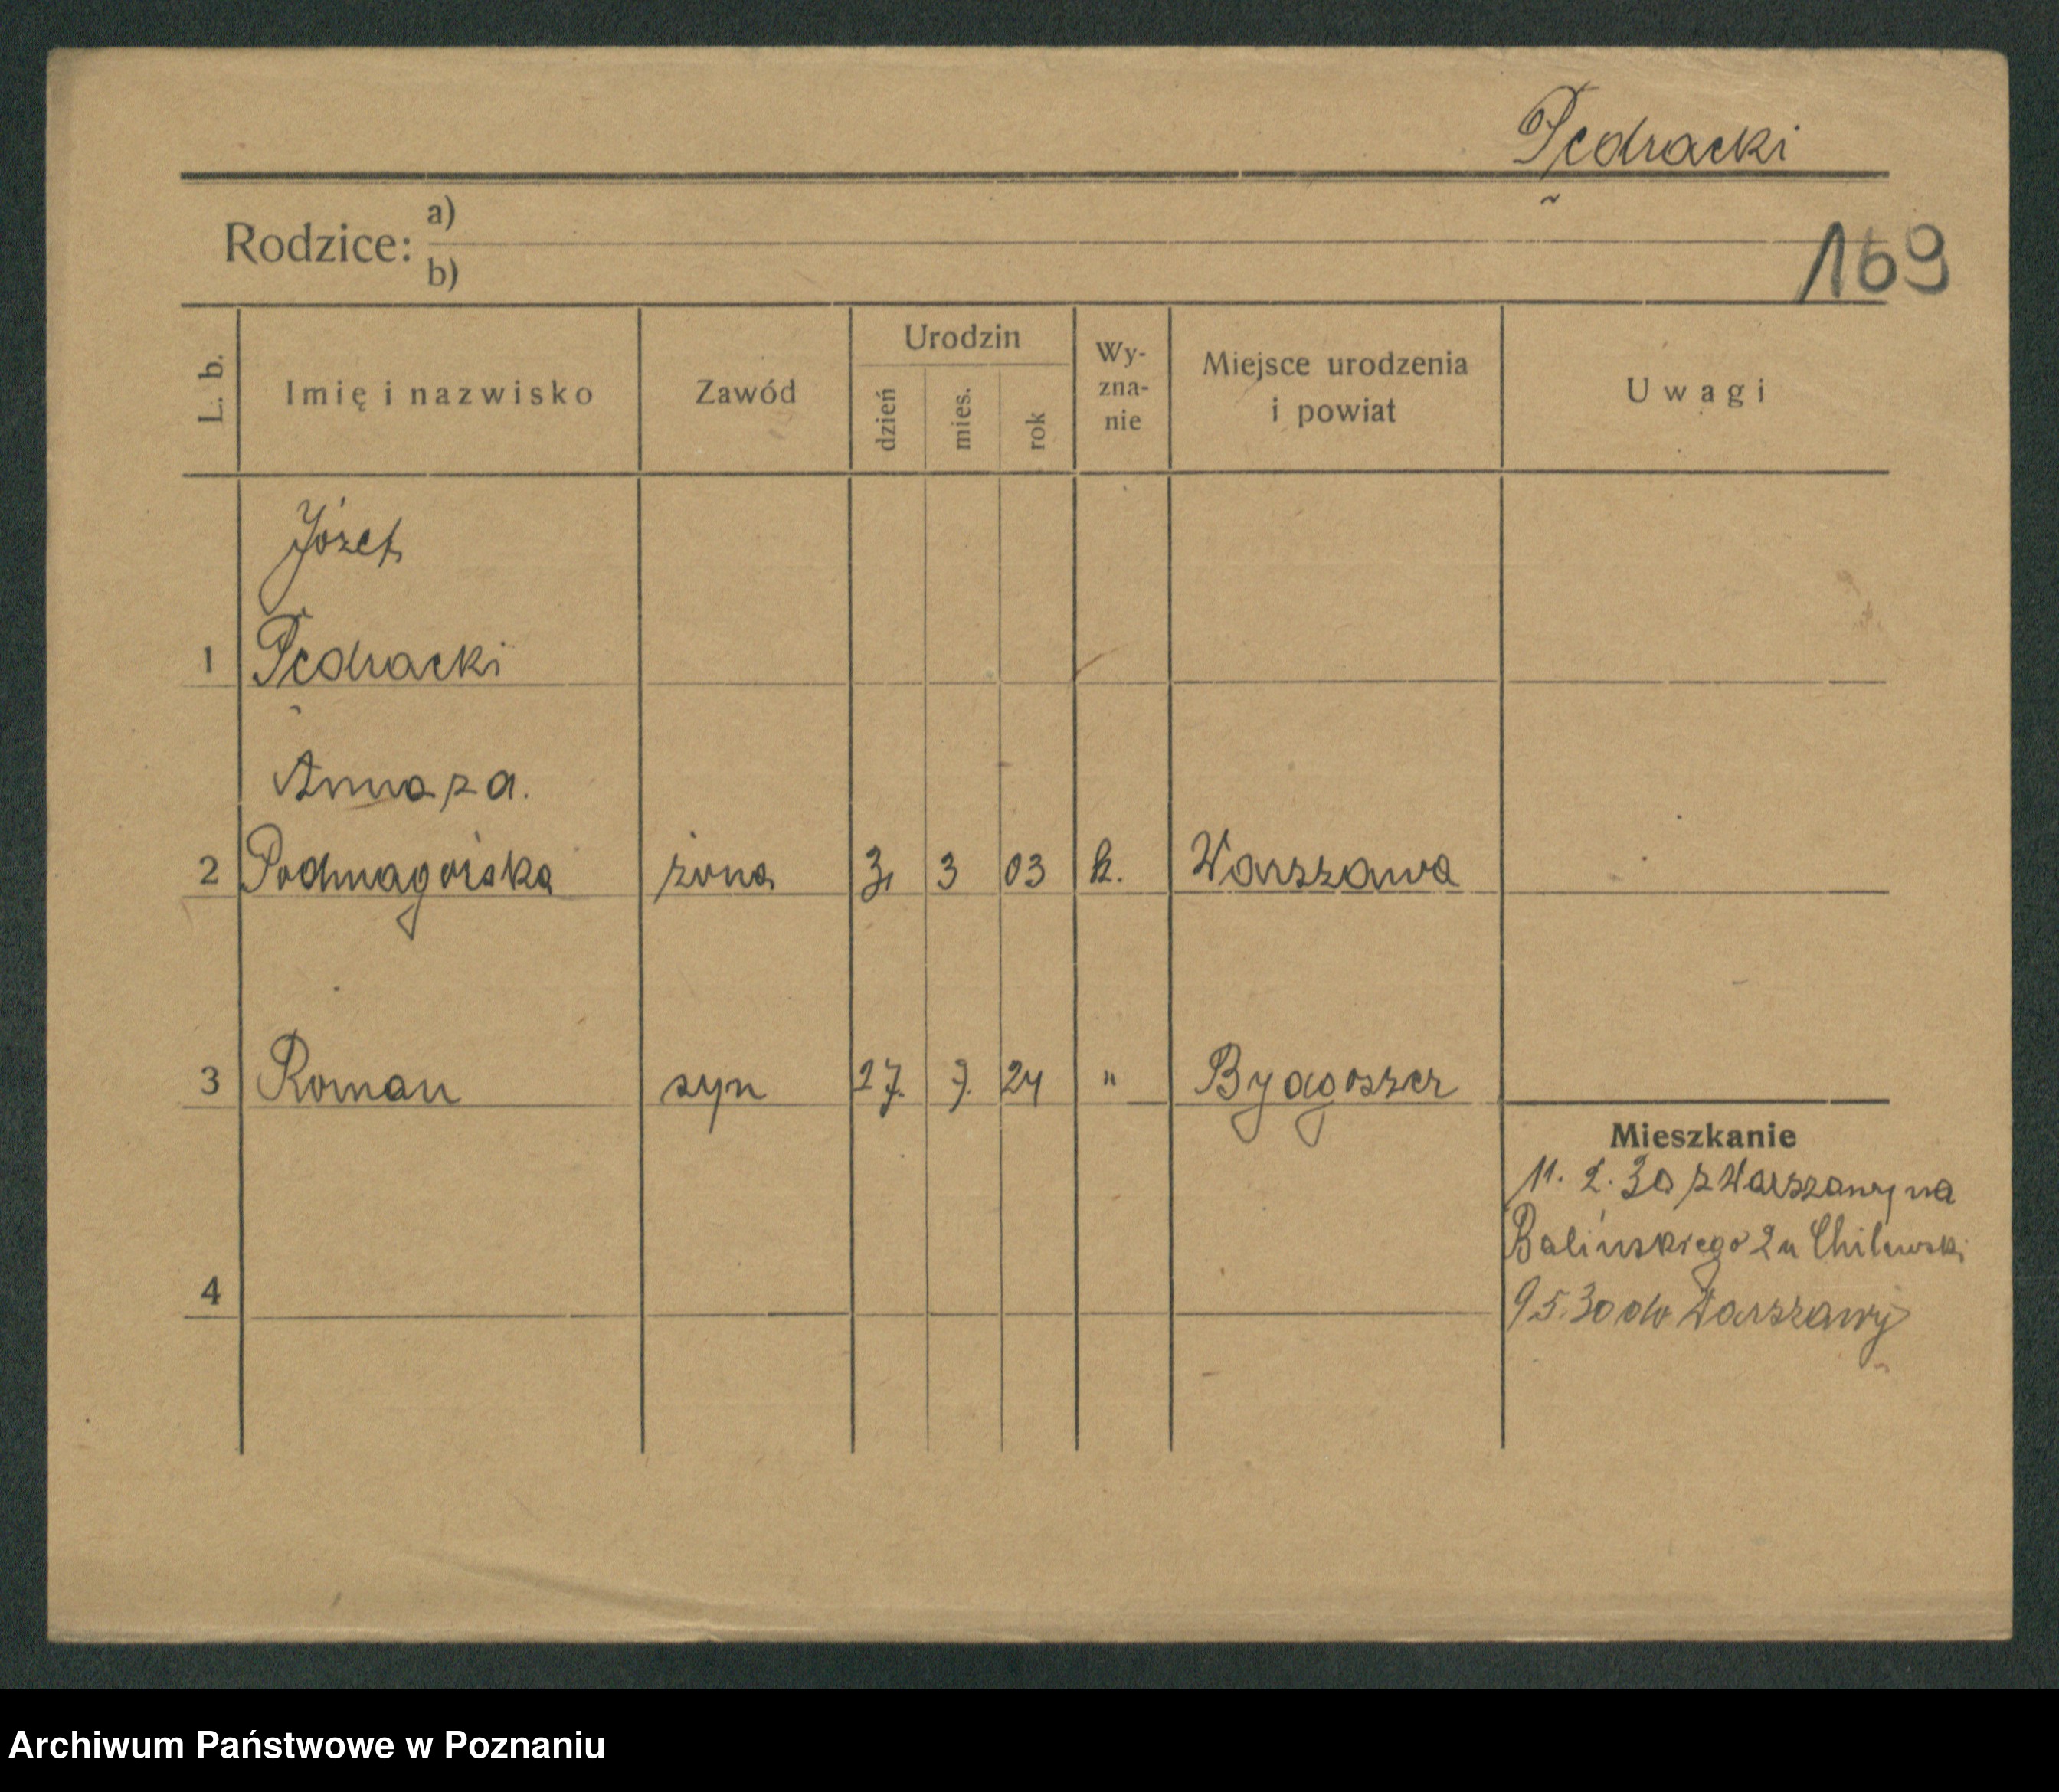 Pędracki
Rodzice: a)
b)
169
L. b. Imię i nazwisko Zawód Urodzin dzień mies. rok Wy-zna-nie Miejsce urodzenia i powiat Uwagi
Józef
1 Pędracki
Anna z d.
2 Podmagórska żona 3 3 03 k. Warszawa
3 Roman syn 27. 7. 24 " Bydgoszcz
Mieszkanie
11. 2. 30 z Warszawy na
Balińskiego 2 u
4
9 5. 30 do Warszawy
Archiwum Państwowe w Poznaniu